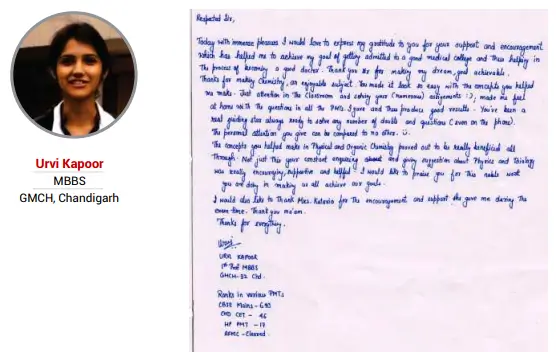 Urvi Kapoor
MBBS
GMCH, Chandigarh
Respected Sir,
Today with immense pleasure I would love to express my gratitude to you for your support and encouragement
which has helped me to achieve my goal of getting admitted to a good medical college and thus helping in
the process of becoming a good doctor. Thank you sir for making my dream, goal achievable.
Thanks for making Chemistry, an enjoyable subject. You made it look so easy with the concepts you helped
me make. Just attention in the classroom and solving your (numerous) assignments :), made me feel
at home with the questions in all the PMTs I gave and thus produce good results. You've been a
real guiding star always ready to solve any number of doubts and questions (even on the phone).
The personal attention you give can be compared to no other. :).
The concepts you helped make in Physical and Organic Chemistry proved out to be really beneficial all
through. Not just this your constant enquiring about and giving suggestion about Physics and Biology
was really encouraging, supportive and helpful. I would like to praise you for this noble work
you are doing in making us all achieve our goals.
I would also like to Thank Mrs. for the encouragement and support she gave me during the
exam time. Thank you ma'am.
Thanks for everything.
Urvi
URVI KAPOOR
1st Prof MBBS
GMCH-32 Chd.
Ranks in various PMTs
CBSE Mains - 690
CHD CET - 46
HP PMT - 17
AFMC - Cleared